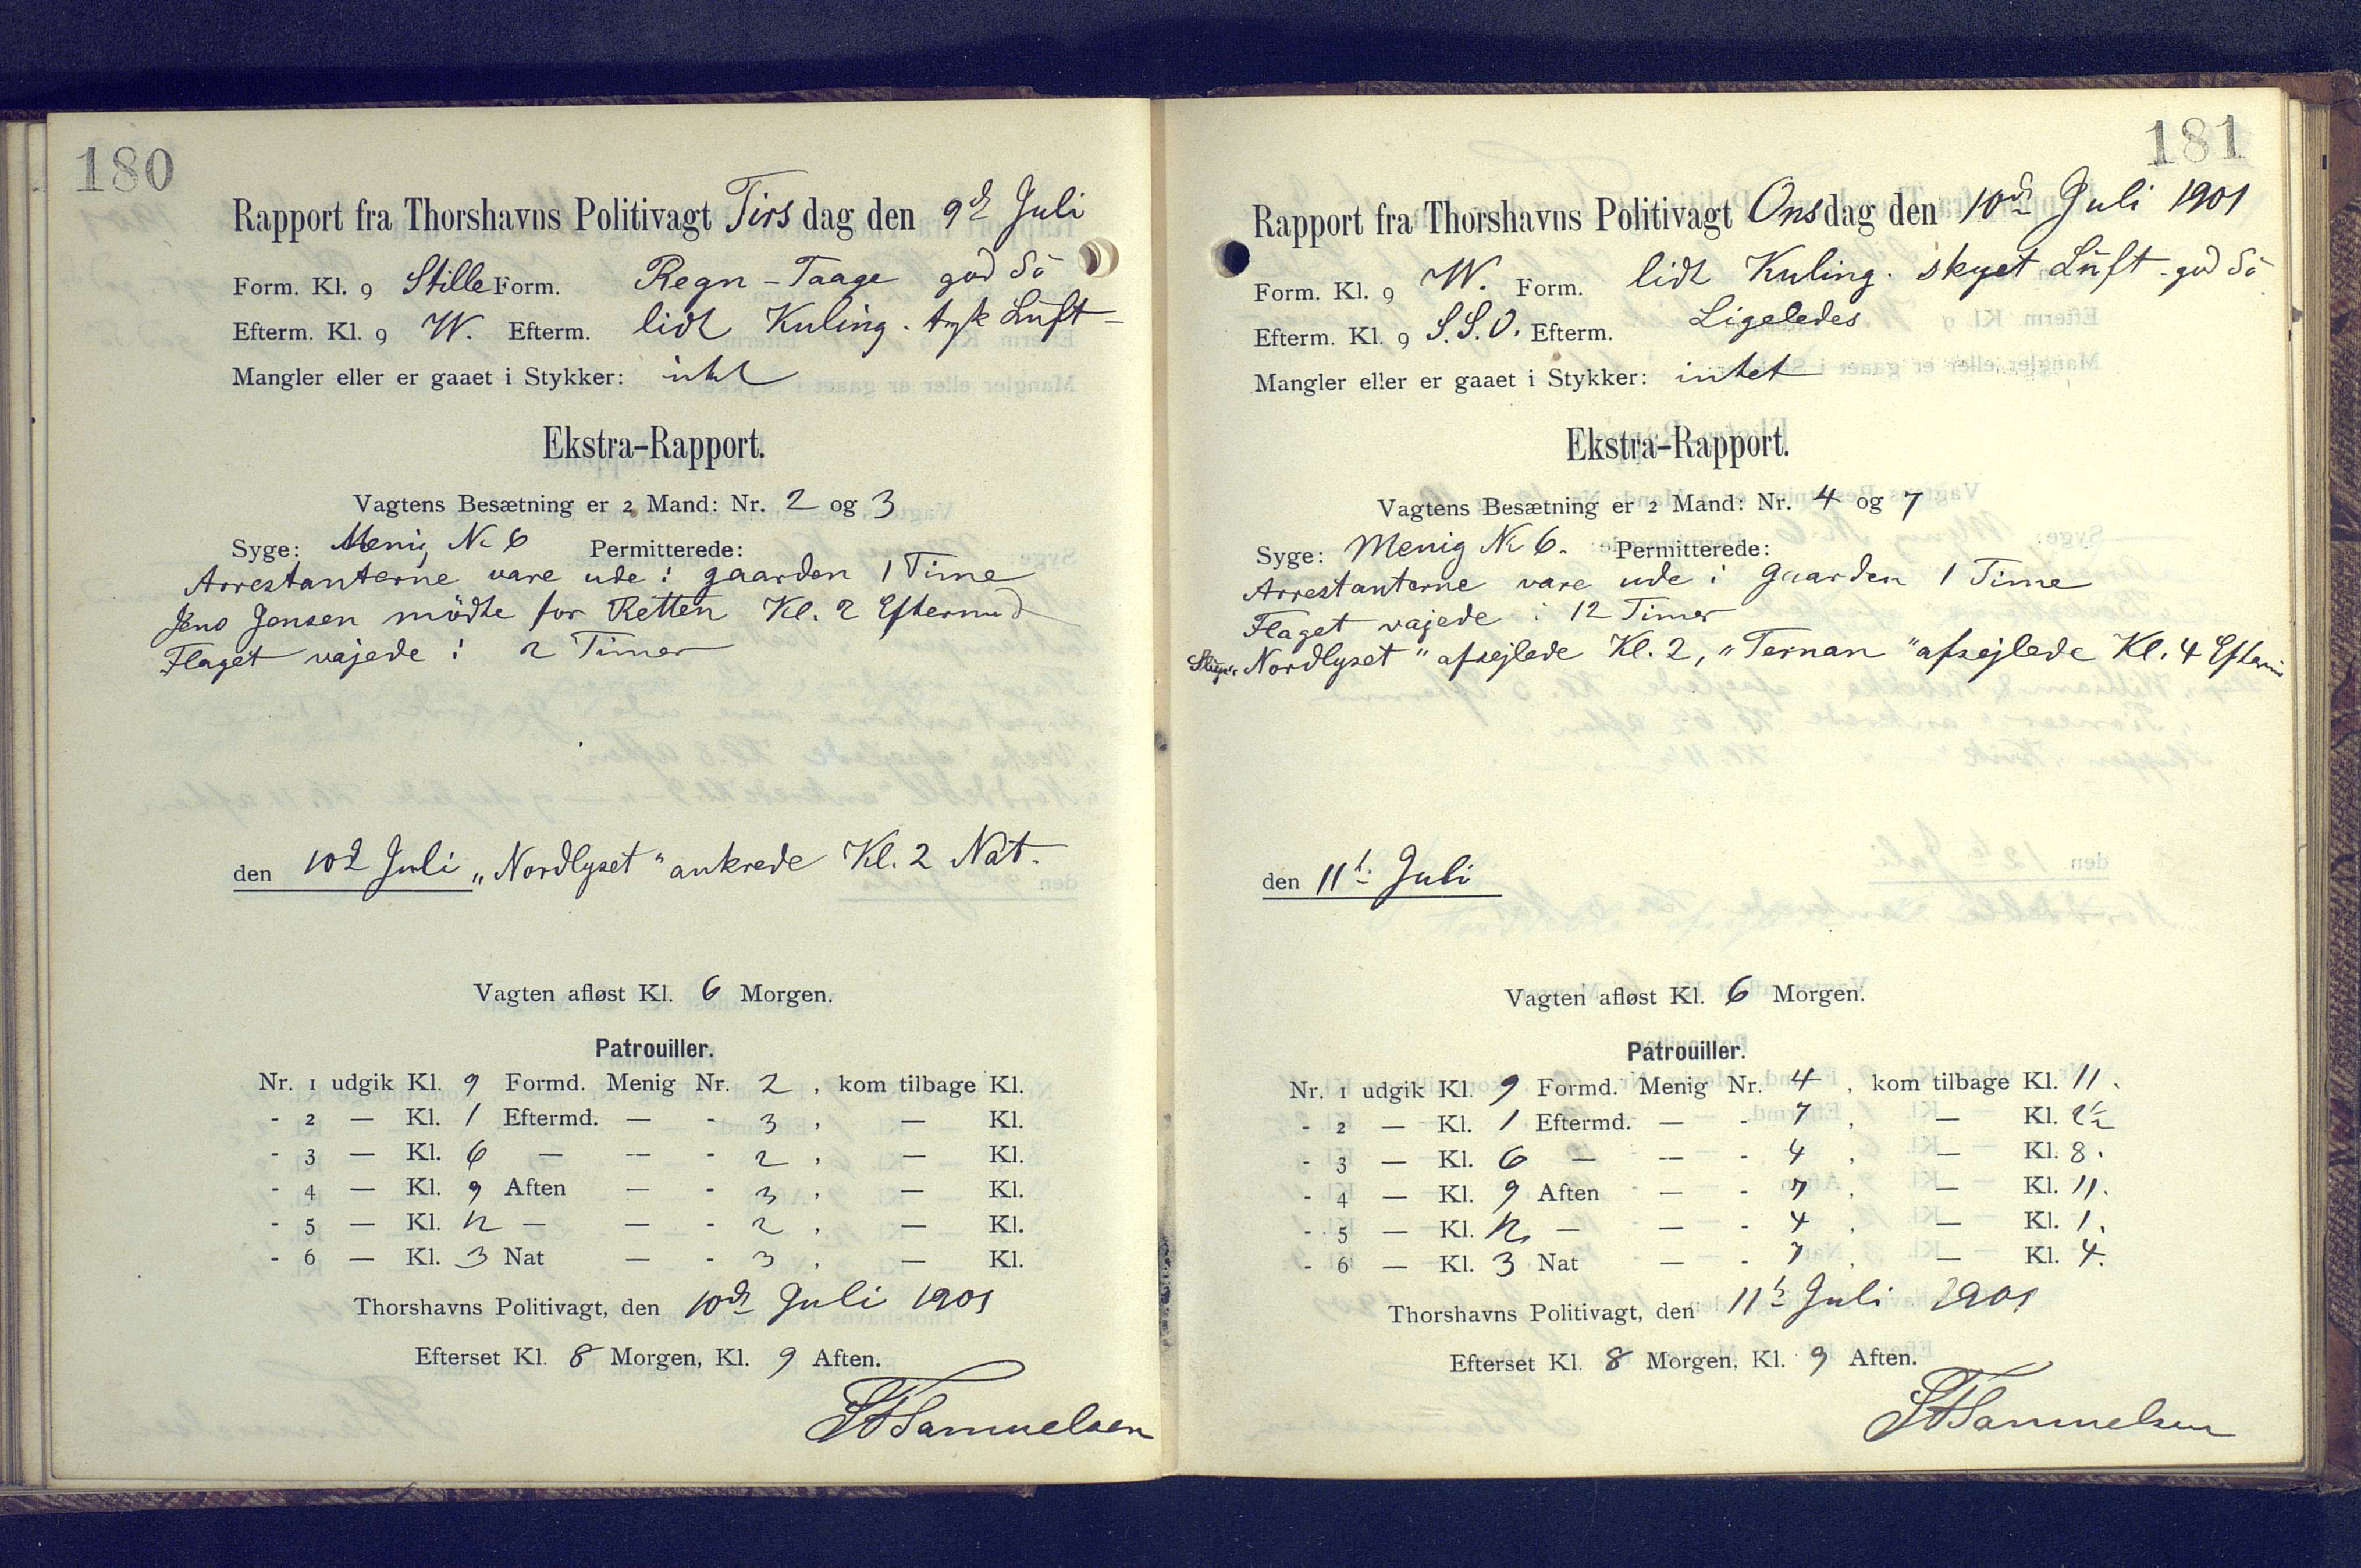 180
Rapport fra Thorshavns Politivagt Tirsdag den 9d Juli
Form. Kl. 9 Stille Form. Regn - Taage god Sö
Efterm. Kl. 9 W. Efterm. lidt Kuling. tyk Luft -
Mangler eller er gaaet i Stykker: intet
Ekstra-Rapport.
Vagtens Besætning er 2 Mand: Nr. 2 og 3
Syge: Menig No 6 Permitterede:
Arrestanterne vare ude i gaarden 1 Time
Jens Jensen mödte for Retten Kl. 2 Eftermd
Flaget vajede i 2 Timer
den 10d Juli „Nordlyset" ankrede Kl. 2 Nat.
Vagten afløst Kl. 6 Morgen.
Patrouiller.
Nr. 1 udgik Kl. 9 Formd. Menig Nr. 2, kom tilbage Kl.
- 2 — Kl. 1 Eftermd. — - 3, — Kl.
- 3 — Kl. 6 — — - 2, — Kl.
- 4 — Kl. 9 Aften — - 3, — Kl.
- 5 — Kl. 12 — — - 2, — Kl.
- 6 — Kl. 3 Nat — - 3, — Kl.
Thorshavns Politivagt, den 10d Juli 1901
Efterset Kl. 8 Morgen, Kl. 9 Aften.
Samuelsen
181
Rapport fra Thorshavns Politivagt Onsdag den 10d Juli 1901
Form. Kl. 9 W. Form. lidt Kuling. skyet Luft - god Sö
Efterm. Kl. 9 S.S.O. Efterm. Ligeledes
Mangler eller er gaaet i Stykker: intet
Ekstra-Rapport.
Vagtens Besætning er 2 Mand: Nr. 4 og 7
Syge: Menig No 6. Permitterede:
Arrestanterne vare ude i Gaarden 1 Time
Flaget vajede i 12 Timer
„Nordlyset" afsejlede Kl. 2, „Ternan" afsejlede Kl. 4 Efterm
den 11t Juli
Vagten afløst Kl. 6 Morgen.
Patrouiller.
Nr. 1 udgik Kl. 9 Formd. Menig Nr. 4, kom tilbage Kl. 11.
- 2 — Kl. 1 Eftermd. — - 7, — Kl.
- 3 — Kl. 6 — — - 4, — Kl. 8.
- 4 — Kl. 9 Aften — - 7, — Kl. 11.
- 5 — Kl. 12 — — - 4, — Kl. 1.
- 6 — Kl. 3 Nat — - 7, — Kl. 4.
Thorshavns Politivagt, den 11t Juli 1901
Efterset Kl. 8 Morgen, Kl. 9 Aften.
Samuelsen